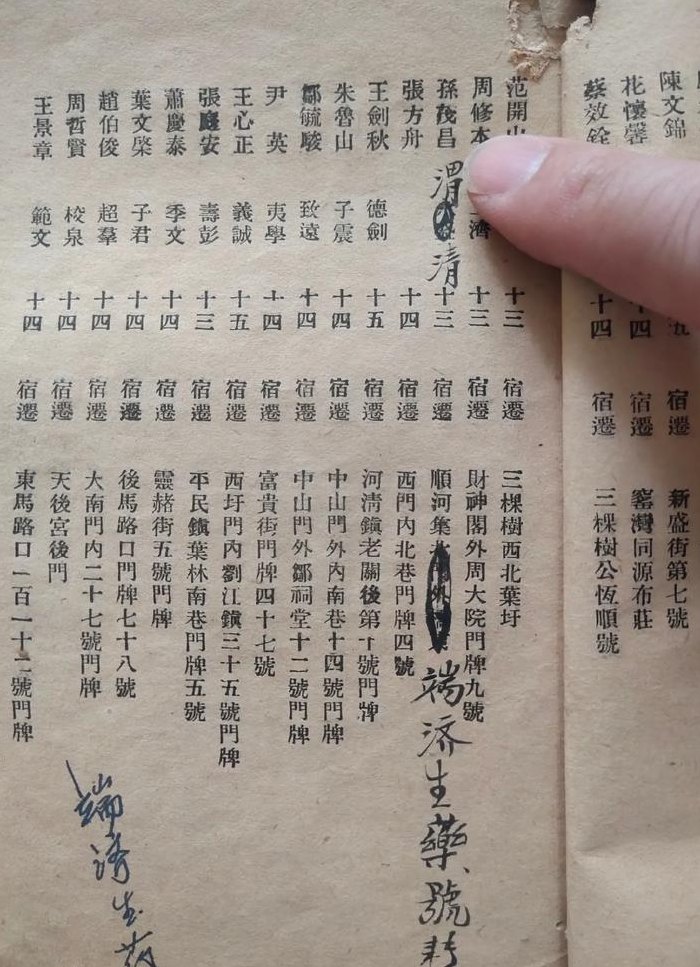 陳文錦 五 宿遷 新盛街第七號
花懷馨 十四 宿遷 窰灣同源布莊
蔡效銓 十四 宿遷 三棵樹公恆順號
范開山 十三 宿遷 三棵樹西北葉圩
周修本 濟 十三 宿遷 財神閣外周大院門牌九號
孫茂昌 渭清 十三 宿遷 順河集 端济生藥號
張方舟 十四 宿遷 西門內北巷門牌四號
王劍秋 德劍 十五 宿遷 河清鎮老關後第十號門牌
朱魯山 子震 十四 宿遷 中山門外內南巷十四號門牌
鄒毓駿 致遠 十四 宿遷 中山門外鄒祠堂十二號門牌
尹英 夷學 十四 宿遷 富貴街門牌四十七號
王心正 義誠 十五 宿遷 西圩門內劉江鎮三十五號門牌
張庭安 壽彭 十三 宿遷 平民鎮葉林南巷門牌五號
蕭慶泰 季文 十四 宿遷 靈赭街五號門牌
葉文棨 子君 十四 宿遷 後馬路口門牌七十八號
趙伯俊 超羣 十四 宿遷 大南門內二十七號門牌
周哲賢 校泉 十四 宿遷 天後宮後門
王景章 範文 十四 宿遷 東馬路口一百一十二號門牌
端济生药